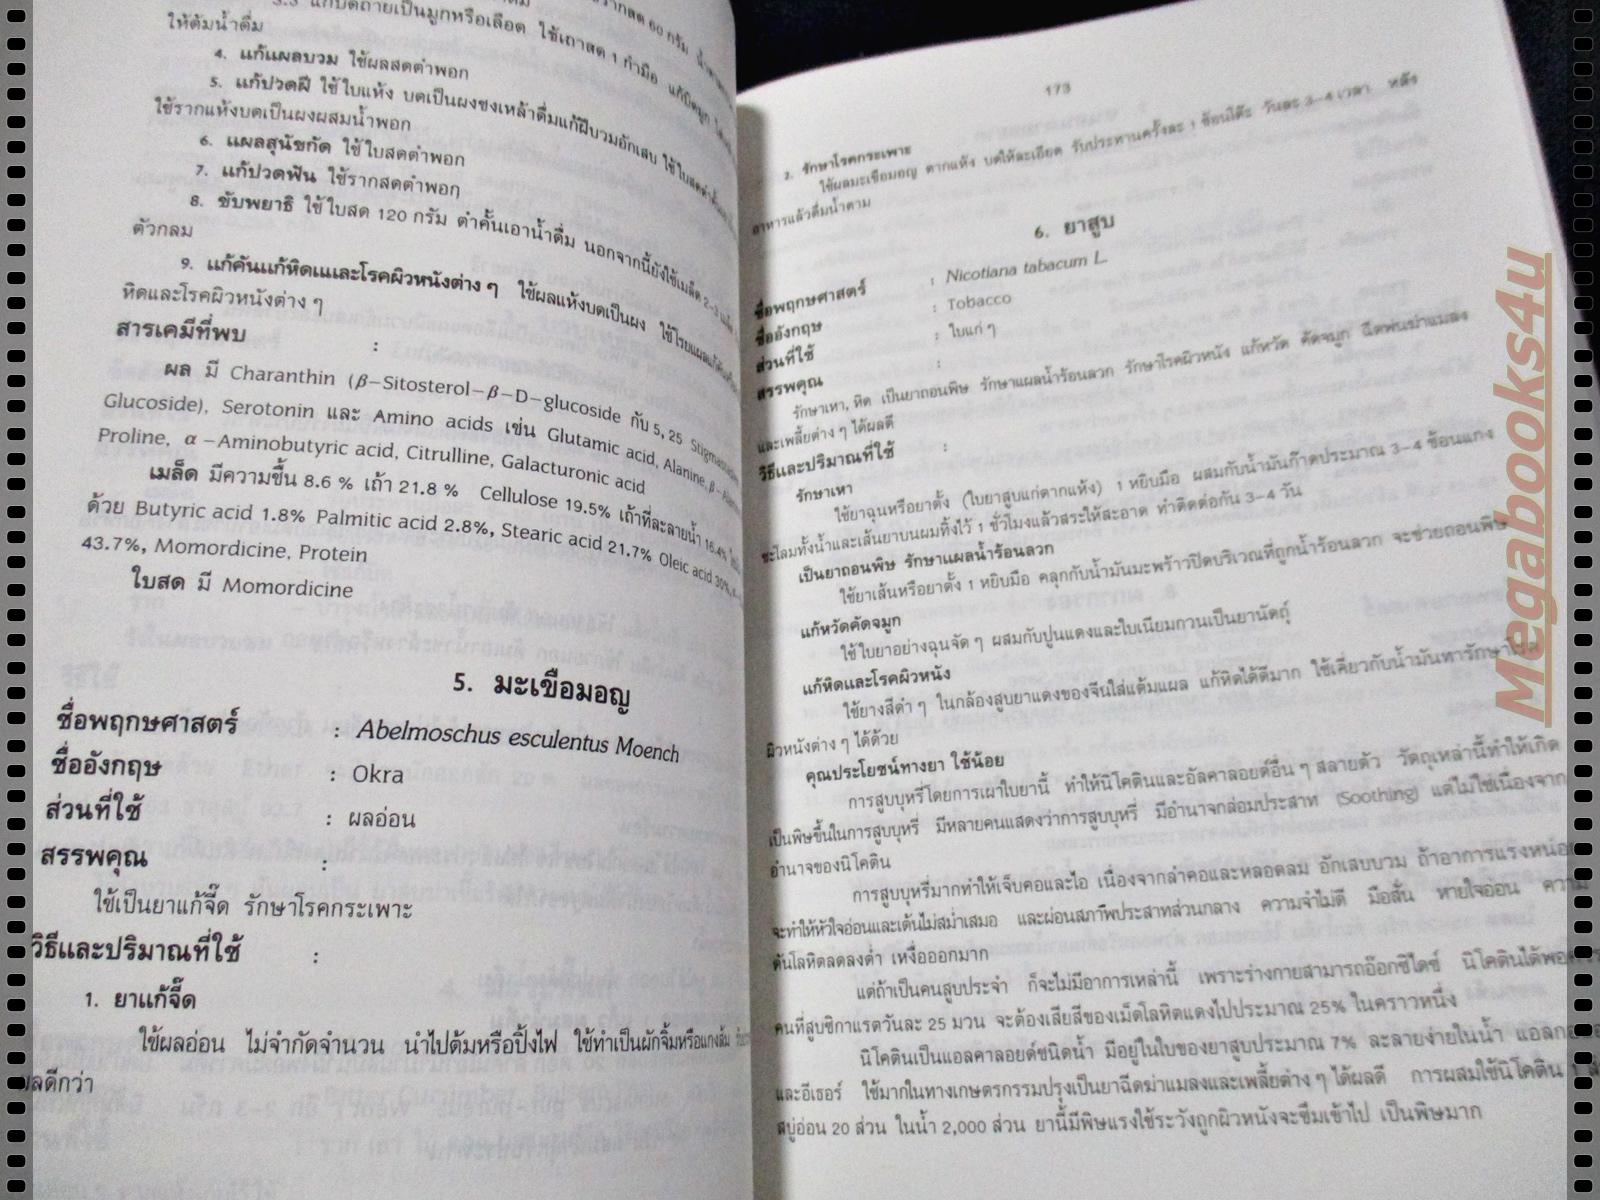 3.3 แก้บิดถ่ายเป็นมูกหรือเลือด ใช้เถาสด 1 กำมือ แก้บิดมูก
ให้ต้มน้ำดื่ม
4. แก้แผลบวม ใช้ผลสดตำพอก
5. แก้ปวดฝี ใช้ใบแห้ง บดเป็นผงชงเหล้าดื่มแก้ฝีบวมอักเสบ ใช้ใบสดตำ
ใช้รากแห้งบดเป็นผงผสมน้ำพอก
6. แผลสุนัขกัด ใช้ใบสดตำพอก
7. แก้ปวดฟัน ใช้รากสดตำพอก
8. ขับพยาธิ ใช้ใบสด 120 กรัม ตำคั้นเอาน้ำดื่ม นอกจากนี้ยังใช้เมล็ด 2-3
ตัวกลม
9. แก้คันแก้หิดและโรคผิวหนังต่าง ๆ ใช้ผลแห้งบดเป็นผง ใช้โรยแผลแก้
หิดและโรคผิวหนังต่าง ๆ
สารเคมีที่พบ :
ผล มี Charanthin (β-Sitosterol-β-D-glucoside กับ 5, 25
Glucoside), Serotonin และ Amino acids เช่น Glutamic acid, Alanine, β-
Proline, α-Aminobutyric acid, Citrulline, Galacturonic acid
เมล็ด มีความชื้น 8.6 % เถ้า 21.8 % Cellulose 19.5% เถ้าที่ละลายน้ำ 16.4%
ด้วย Butyric acid 1.8% Palmitic acid 2.8%, Stearic acid 21.7% Oleic acid 30%,
43.7%, Momordicine, Protein
ใบสด มี Momordicine
5. มะเขือมอญ
ชื่อพฤกษศาสตร์ : Abelmoschus esculentus Moench
ชื่ออังกฤษ : Okra
ส่วนที่ใช้ : ผลอ่อน
สรรพคุณ :
ใช้เป็นยาแก้จี๊ด รักษาโรคกระเพาะ
วิธีและปริมาณที่ใช้ :
1. ยาแก้จี๊ด
ใช้ผลอ่อน ไม่จำกัดจำนวน นำไปต้มหรือปิ้งไฟ ใช้ทำเป็นผักจิ้มหรือแกงส้ม
ผลดีกว่า
173
2. รักษาโรคกระเพาะ
ใช้ผลมะเขือมอญ ตากแห้ง บดให้ละเอียด รับประทานครั้งละ 1 ช้อนโต๊ะ วันละ 3-4 เวลา หลัง
อาหารแล้วดื่มน้ำตาม
6. ยาสูบ
ชื่อพฤกษศาสตร์ : Nicotiana tabacum L.
ชื่ออังกฤษ : Tobacco
ส่วนที่ใช้ : ใบแก่ ๆ
สรรพคุณ :
รักษาเหา, หิด เป็นยาถอนพิษ รักษาแผลน้ำร้อนลวก รักษาโรคผิวหนัง แก้หวัด คัดจมูก ฉีดพ่นฆ่าแมลง
และเพลี้ยต่าง ๆ ได้ผลดี
วิธีและปริมาณที่ใช้ :
รักษาเหา
ใช้ยาฉุนหรือยาตั้ง (ใบยาสูบแก่ตากแห้ง) 1 หยิบมือ ผสมกับน้ำมันก๊าดประมาณ 3-4 ช้อนแกง
ชะโลมทั้งน้ำและเส้นยาบนผมทิ้งไว้ 1 ชั่วโมงแล้วสระให้สะอาด ทำติดต่อกัน 3-4 วัน
เป็นยาถอนพิษ รักษาแผลน้ำร้อนลวก
ใช้ยาเส้นหรือยาตั้ง 1 หยิบมือ คลุกกับน้ำมันมะพร้าวปิดบริเวณที่ถูกน้ำร้อนลวก จะช่วยถอนพิษ
แก้หวัดคัดจมูก
ใช้ใบยาอย่างฉุนจัด ๆ ผสมกับปูนแดงและใบเนียมกวนเป็นยานัตถุ์
แก้หิดและโรคผิวหนัง
ใช้ยางสีดำ ๆ ในกล้องสูบยาแดงของจีนใส่แต้มแผล แก้หิดได้ดีมาก ใช้เคี่ยวกับน้ำมันทารักษาโรค
ผิวหนังต่าง ๆ ได้ด้วย
คุณประโยชน์ทางยา ใช้น้อย
การสูบบุหรี่โดยการเผาใบยานี้ ทำให้นิโคตินและอัลคาลอยด์อื่น ๆ สลายตัว วัตถุเหล่านี้ทำให้เกิด
เป็นพิษขึ้นในการสูบบุหรี่ มีหลายคนแสดงว่าการสูบบุหรี่ มีอำนาจกล่อมประสาท (Soothing) แต่ไม่ใช่เนื่องจาก
อำนาจของนิโคติน
การสูบบุหรี่มากทำให้เจ็บคอและไอ เนื่องจากลำคอและหลอดลม อักเสบบวม ถ้าอาการแรงหน่อย
จะทำให้หัวใจอ่อนและเต้นไม่สม่ำเสมอ และผ่อนสภาพประสาทส่วนกลาง ความจำไม่ดี มือสั่น หายใจอ่อน ความ
ดันโลหิตลดลงต่ำ เหงื่อออกมาก
แต่ถ้าเป็นคนสูบประจำ ก็จะไม่มีอาการเหล่านี้ เพราะร่างกายสามารถอ๊อกซิไดซ์ นิโคตินได้พอควร
คนที่สูบซิกาแรตวันละ 25 มวน จะต้องเสียสีของเม็ดโลหิตแดงไปประมาณ 25% ในคราวหนึ่ง
นิโคตินเป็นแอลคาลอยด์ชนิดน้ำ มีอยู่ในใบของยาสูบประมาณ 7% ละลายง่ายในน้ำ
และอีเธอร์ ใช้มากในทางเกษตรกรรมปรุงเป็นยาฉีดฆ่าแมลงและเพลี้ยต่าง ๆ ได้ผลดี การผสมใช้นิโคติน 1
สบู่อ่อน 20 ส่วน ในน้ำ 2,000 ส่วน ยานี้มีพิษแรงใช้ระวังถูกผิวหนังจะซึมเข้าไป เป็นพิษมาก
Megabooks4u